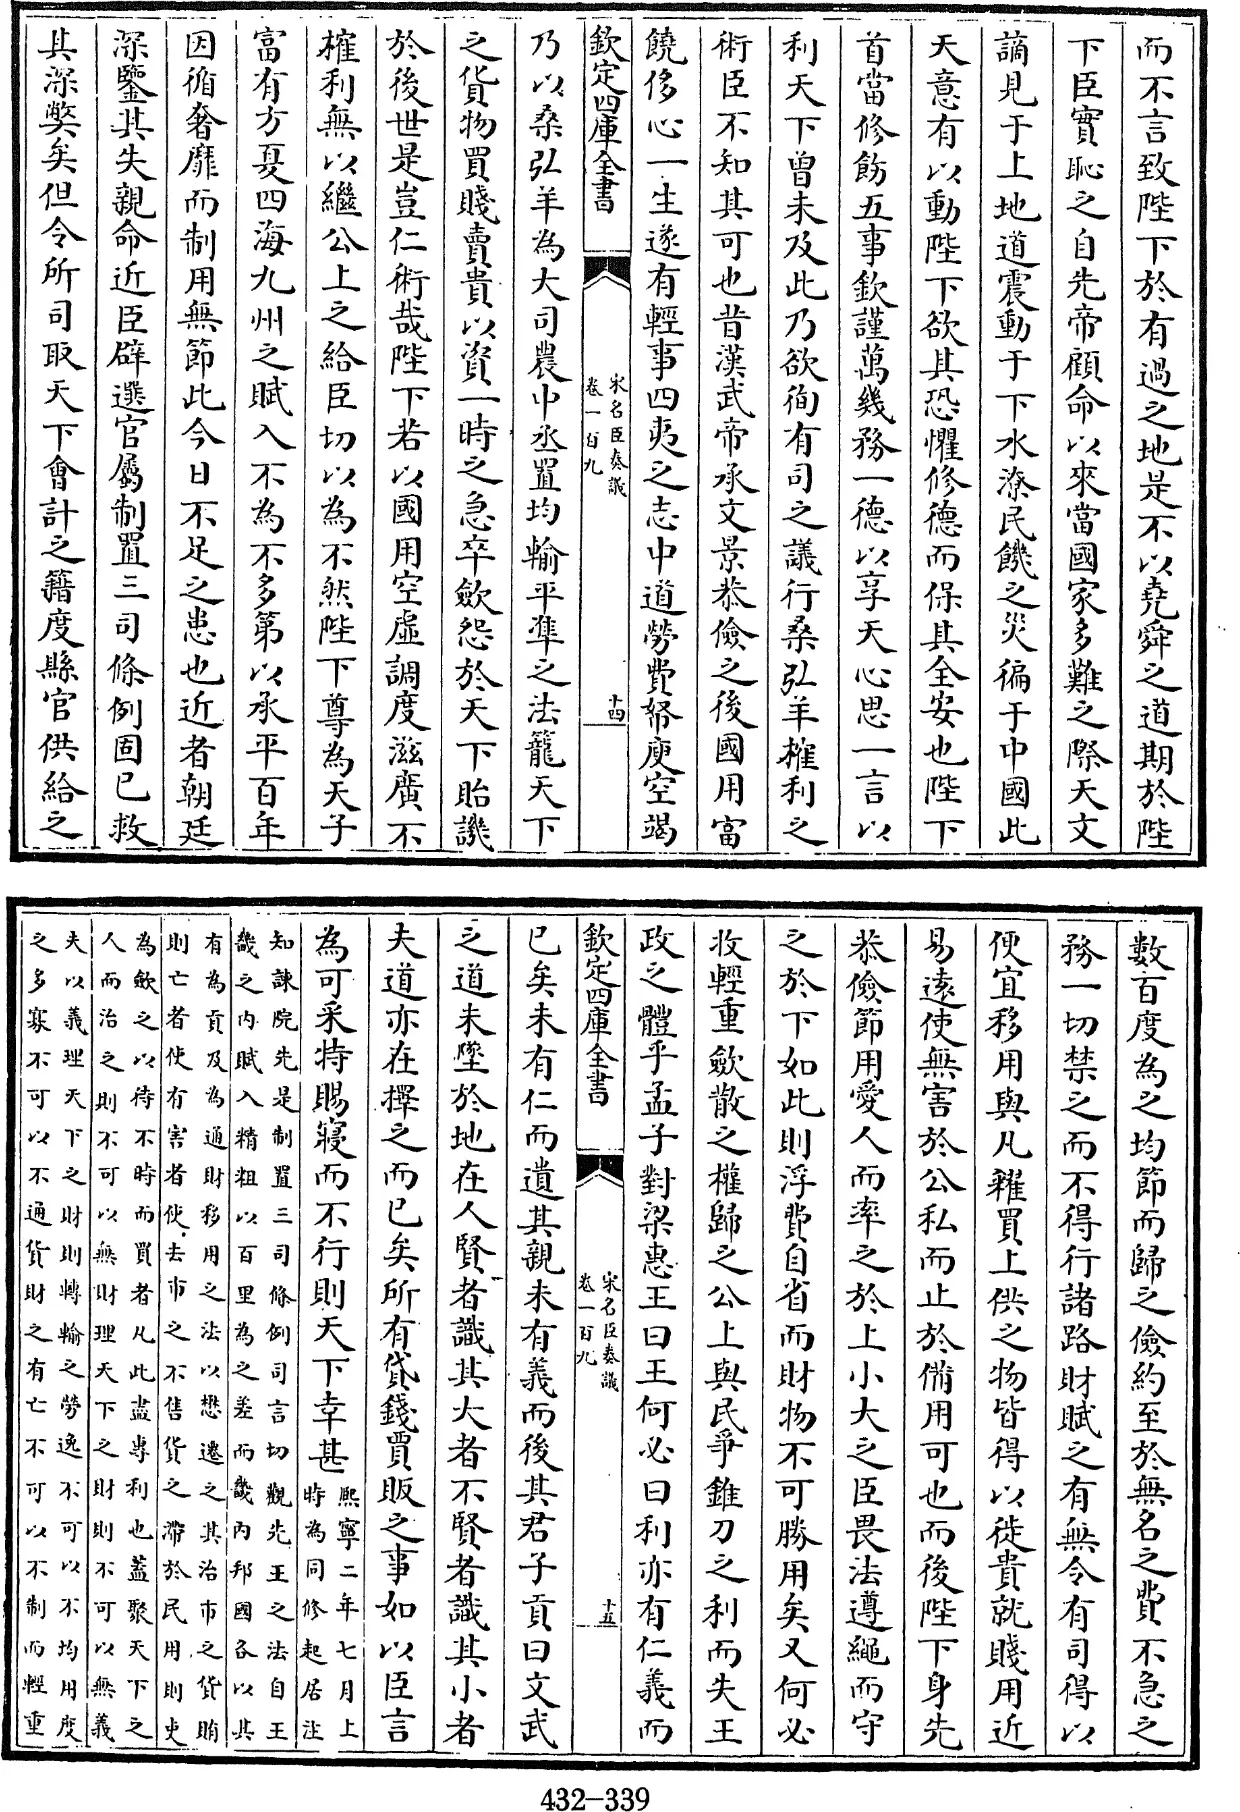 而不言致陛下於有過之地是不以堯舜之道期於陛
下臣實恥之自先帝顧命以來當國家多難之際天文
謫見于上地道震動于下水潦民饑之災徧于中國此
天意有以動陛下欲其恐懼修德而保其全安也陛下
首當修飭五事欽謹萬幾務一德以享天心思一言以
利天下曾未及此乃欲徇有司之議行桑弘羊榷利之
術臣不知其可也昔漢武帝承文景恭儉之後國用富
饒侈心一生遂有輕事四夷之志中道勞費帑庾空竭
欽定四庫全書
宋名臣奏議
卷一百九
十四
乃以桑弘羊為大司農中丞置均輸平準之法籠天下
之貨物買賤賣貴以資一時之急卒斂怨於天下貽譏
於後世是豈仁術哉陛下若以國用空虛調度滋廣不
榷利無以繼公上之給臣切以為不然陛下尊為天子
富有方夏四海九州之賦入不為不多第以承平百年
因循奢靡而制用無節此今日不足之患也近者朝廷
深鑒其失親命近臣辟選官屬制置三司條例固已救
其深弊矣但令所司取天下會計之籍度縣官供給之
數百度為之均節而歸之儉約至於無名之費不急之
務一切禁之而不得行諸路財賦之有無令有司得以
便宜移用與凡糴買上供之物皆得以徙貴就賤用近
易遠使無害於公私而止於備用可也而後陛下身先
恭儉節用愛人而率之於上小大之臣畏法遵繩而守
之於下如此則浮費自省而財物不可勝用矣又何必
收輕重斂散之權歸之公上與民爭錐刀之利而失王
政之體乎孟子對梁惠王曰王何必曰利亦有仁義而
欽定四庫全書
宋名臣奏議
卷一百九
十五
已矣未有仁而遺其親未有義而後其君子貢曰文武
之道未墜於地在人賢者識其大者不賢者識其小者
夫道亦在擇之而已矣所有貸錢買販之事如以臣言
為可采特賜寢而不行則天下幸甚
熙寧二年七月上
時為同修起居注
知諫院先是制置三司條例司言切觀先王之法自王
畿之內賦入精粗以百里為之差而畿內邦國各以其
有為貢及為通財移用之法以懋遷之其治市之貨賄
則亡者使有害者使去市之不售貨之滯於民用則吏
為斂之以待不時而買者凡此盡專利也蓋聚天下之
人而治之則不可以無財理天下之財則不可以無義
夫以義理天下之財則轉輸之勞逸不可以不均用度
之多寡不可以不通貨財之有亡不可以不制而輕重
432-339